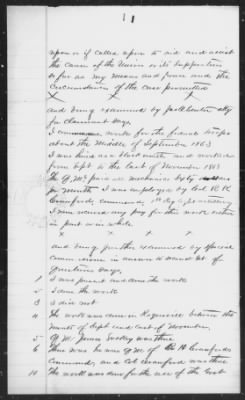 11
upon or if called upon to aid and assist
the cause of the Union or its supporters
so far as my means and power and the
circumstances of the case permitted
x x x
and being examined by Jno Atty
for Claimant says
I commenced work for the federal troops
about the Middle of September 1863
I was hired as a black smith and worked
from Sept to the last of November 1863
The Q. M. paid as mechanics by
pr Month I was employed by Col R K
Crawford, commanding
I never received my pay for this work either
in part or in whole
x x x x
and being further examined by special
commissioner in answer to
questions says,
1 I was present and done the work
2 I done the work
3 I did not
4 The work was done in between the
Months of Sept and last of November
5 Q M James was there
6 There was he was Q. M. of R K Crawfords
Command and Col Crawford was there
10 The work was done for the use of the Govt